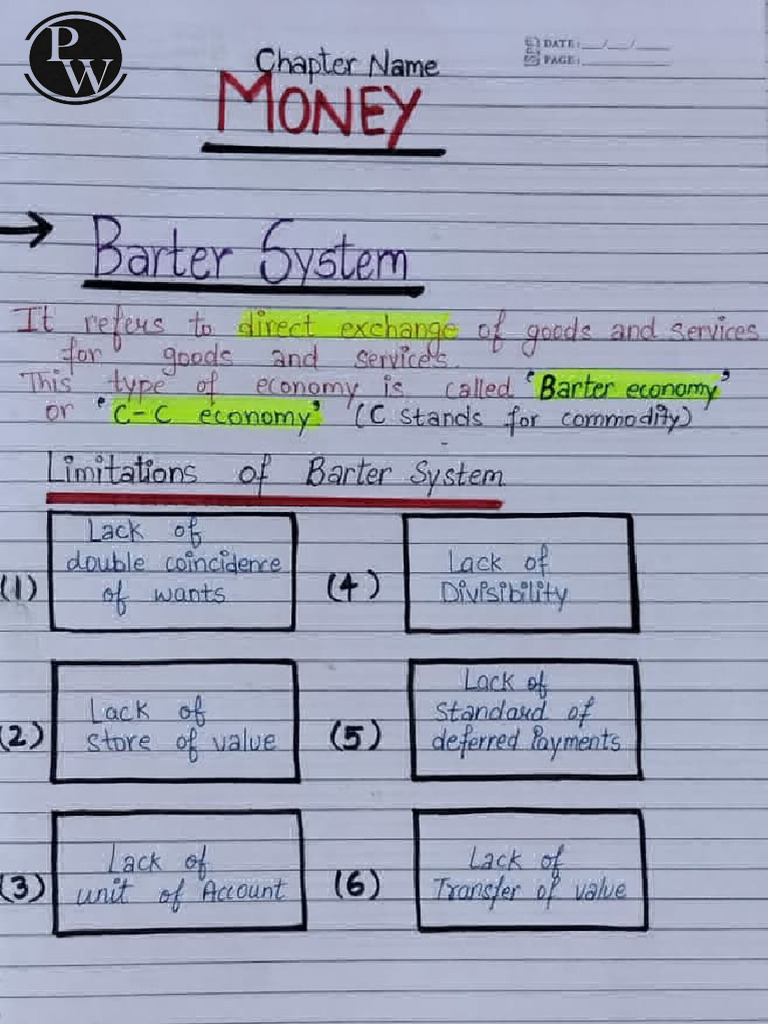 PW
DATE: __/__/____
PAGE: __________
Chapter Name
MONEY
→ Barter System
It refers to direct exchange of goods and services
for goods and services.
This type of economy is called 'Barter economy'
or 'C-C economy' (C stands for commodity)
Limitations of Barter System
(1) Lack of
double coincidence
of wants
(2) Lack of
store of value
(3) Lack of
unit of Account
(4) Lack of
Divisibility
(5) Lack of
Standard of
deferred Payments
(6) Lack of
Transfer of value